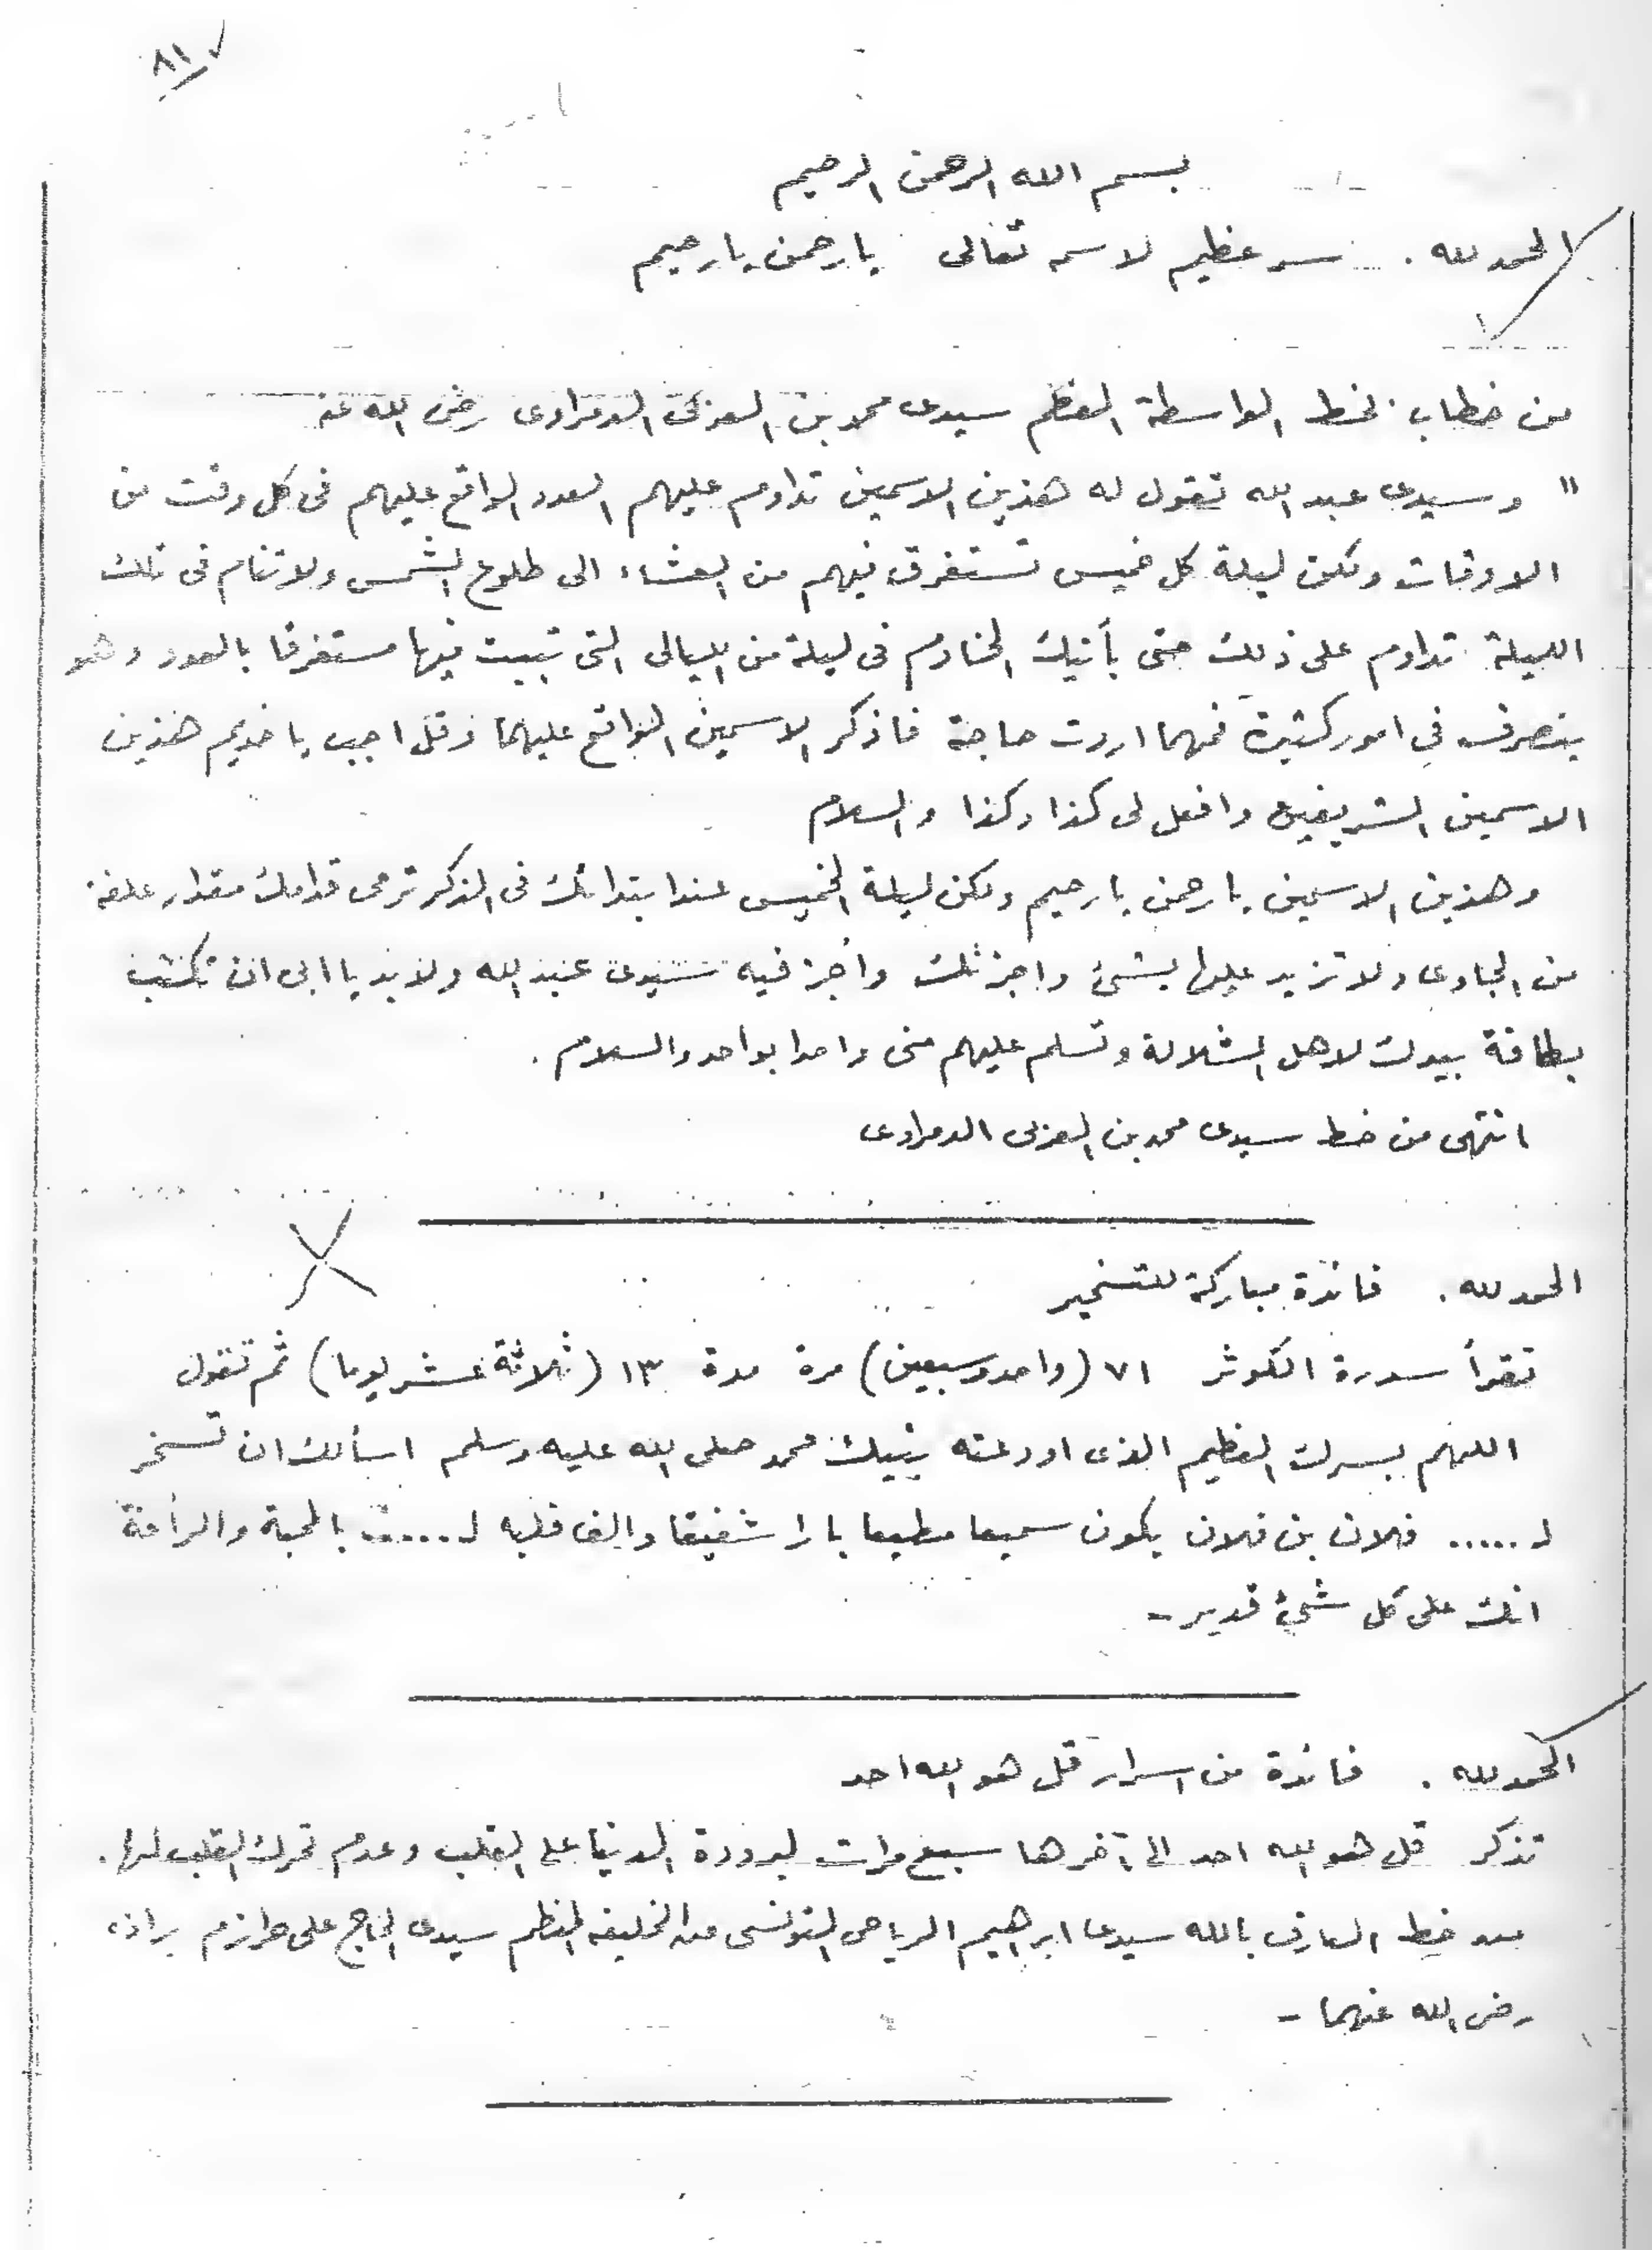 ٨١
بسم الله الرحمن الرحيم
الحمد لله . سر عظيم لاسمه تعالى يا رحمن يا رحيم
من خطاب بخط الواسطة المعظم سيدى محمد بن العربى الدمراوى رضى الله عنه
" وسيدى عبد الله تقول له هذين الاسمين تداوم عليهم العدد الواقع عليهم فى كل وقت من
الاوقات ولكن ليلة كل خميس تستغرق فيهم من العشاء الى طلوع الشمس ولا تنام فى تلك
الليلة تداوم على ذلك حتى يأتيك الخادم فى ليلة من الليالى التى تبيت فيها مستغرقا بالعدد وهو
يتصرف في امور كثيرة فمهما اردت حاجة فاذكر الاسمين الواقع عليهما وقل اجب يا خديم هذين
الاسمين الشريفين وافعل لى كذا وكذا والسلام
وهذين الاسمين يا رحمن يا رحيم ولكن ليلة الخميس عند ابتدائك فى الذكر ترمى قدامك مقدار علفة
من الجاوى ولا تزيد عليها بشئ واجزتك وأجز فيه سيدى عبد الله ولا بد يا ابى ان تكتب
بطاقة بيدك لاهل الشلالة وتسلم عليهم منى واحدا بواحد والسلام .
انتهى من خط سيدى محمد بن العربى الدمراوى
الحمد لله . فائدة مباركة للتسخير
تقرأ سورة الكوثر ٧١ (واحد وسبعين) مرة مدة ١٣ (ثلاثة عشر يوما) ثم تقول
اللهم بسرك العظيم الذى اودعته نبيك محمد صلى الله عليه وسلم اسألك ان تسخر
لـ ...... فلان بن فلان يكون سميعا مطيعا بارا شفيقا والف قلبه لـ ..... بالمحبة والرأفة
انك على كل شئ قدير -
الحمد لله . فائدة من اسرار قل هو الله احد
تذكر قل هو الله احد الى آخرها سبع مرات لبرودة الدنيا على القلب وعدم تحرك القلب لها .
من خط العارف بالله سيدى ابراهيم الرياحى التونسى عن الخليفة المعظم سيدى الحاج على حرازم براده
رضى الله عنهما -